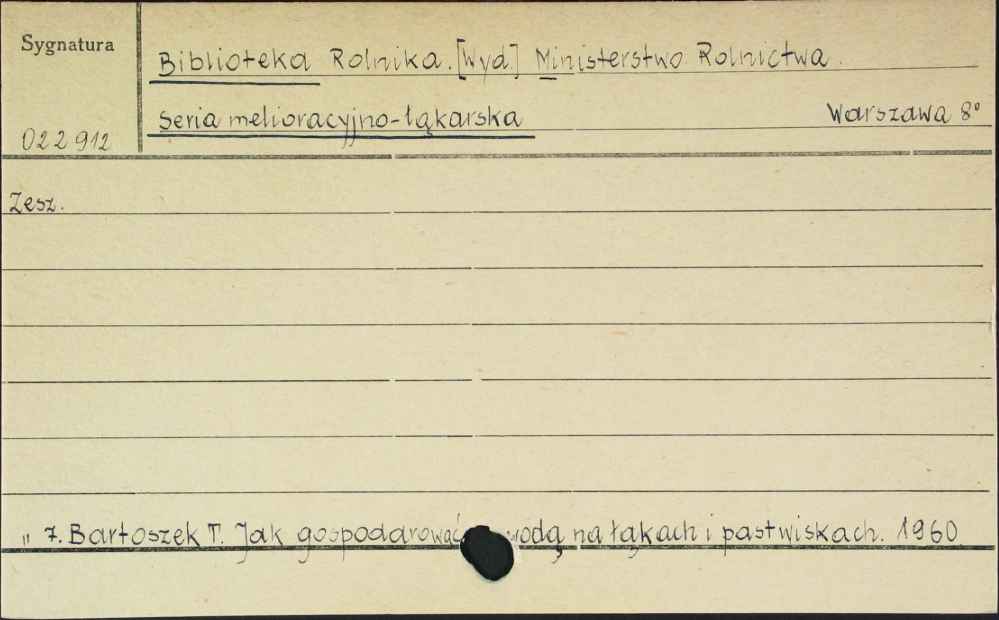 Sygnatura
Biblioteka Rolnika. [Wyd.] Ministerstwo Rolnictwa.
Seria melioracyjno-łąkarska Warszawa 8°
022912
Zesz.
" 7. Bartoszek T. Jak gospodarować wodą na łąkach i pastwiskach. 1960